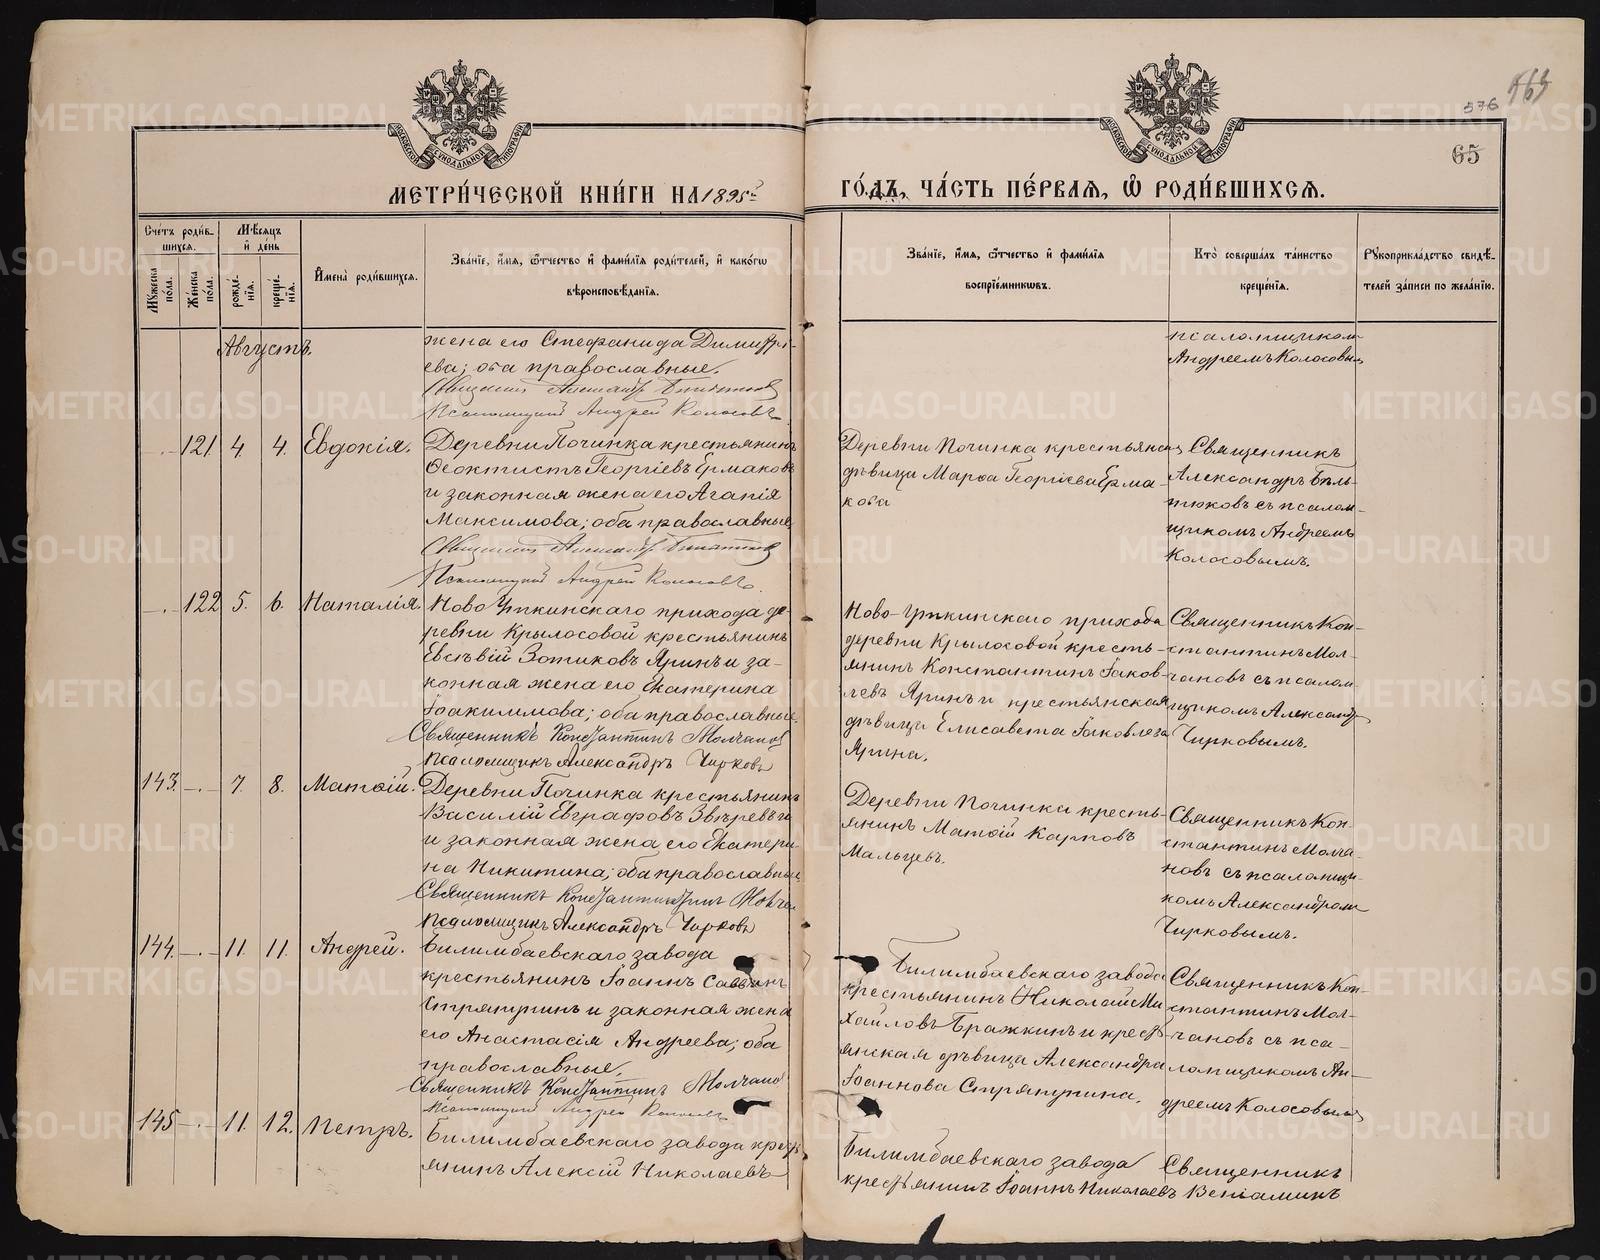 576 563
65
МОСКОВСКОЙ СѴНОДАЛЬНОЙ ТИПОГРАФІИ
МОСКОВСКОЙ СѴНОДАЛЬНОЙ ТИПОГРАФІИ
МЕТРИ́ЧЕСКОЙ КНИ́ГИ НА 1895
ГО́ДЪ, ЧА́СТЬ ПЕ́РВАЯ, Ѡ РОДИ́ВШИХСЯ.
Сче́тъ роди́в-
шихся.
Мꙋжеска по́ла.
Же́нска по́ла.
Мѣ́сяцъ
и де́нь
рожде́-
нїя.
креще́-
нїя.
Имена̀ роди́вшихся.
Зва́нїе, и́мя, ѻ́тчество и фами́лїя роди́телей, и како́гѡ
вѣроисповѣ́данїя.
Зва́нїе, и́мя, ѻ́тчество и фами́лїя
воспрїе́мникѡвъ.
Кто̀ соверша́лъ та́инство
креще́нїя.
Рꙋкоприкла́дство свидѣ́-
телей за́писи по жела́нїю.
Августъ.
жена его Стефанида Димитрі-
ева; оба православные.
Священникъ Александръ
Псаломщикъ Андрей Колосовъ
псаломщикомъ
Андреемъ Колосовымъ
121 4. 4. Евдокія.
Деревни Починка крестьянинъ
Ѳеоктистъ Георгіевъ Ермаковъ
и законная жена его Агапія
Максимова; оба православные.
Священникъ Александръ
Псаломщикъ Андрей Колосовъ.
Деревни Починка крестьянская
дѣвица Марѳа Георгіева Ерма-
кова
Священникъ
Александръ Бѣль-
тюковъ съ псалом-
щикомъ Андреемъ
Колосовымъ.
122 5. 6. Наталія.
Ново Уткинскаго прихода де-
ревни Крылосовой крестьянинъ
Евсѣвій Зотиковъ Яринъ и за-
конная жена его Екатерина
Іоакимова; оба православные.
Священникъ Константинъ Молчановъ
Псаломщикъ Александръ Чирковъ
Ново-Уткинскаго прихода
деревни Крылосовой кресть-
янинъ Константинъ Іаков-
левъ Яринъ и крестьянская
дѣвица Елисавета Іаковлева
Ярина.
Священникъ Кон-
стантинъ Мол-
чановъ съ псалом
щикомъ Александр
Чирковымъ.
143. 7. 8. Матѳій.
Деревни Починка крестьянинъ
Василій Евграфовъ Звѣревъ и
и законная жена его Екатери-
на Никитина; оба православные
Священникъ Константинъ Молчан
Псаломщикъ Александръ Чирковъ
Деревни Починка кресть-
янинъ Матѳій Карповъ
Мальцевъ.
Священникъ Кон-
стантинъ Молча-
новъ съ псаломщи-
комъ Александромъ
Чирковымъ.
144. 11. 11. Андрей.
Билимбаевскаго завода
крестьянинъ Іоаннъ Саввинъ
Стряпунинъ и законная жена
его Анастасія Андреева; оба
православные.
Священникъ Константинъ Молчано
Псаломщикъ Андрей Колосовъ
Билимбаевскаго завода
крестьянинъ Николай Ми
хайловъ Бражкинъ и кресть-
янская дѣвица Александра
Іоаннова Стряпунина.
Священникъ Кон-
стантинъ Мол-
чановъ съ пса-
ломщикомъ Ан-
дреемъ Колосовымъ
145 11. 12. Петръ.
Билимбаевскаго завода кресть
янинъ Алексій Николаевъ
Билимбаевскаго завода
крестьянинъ Іоаннъ Николаевъ
Священникъ
Веніаминъ
METRIKI.GASO-URAL.RU